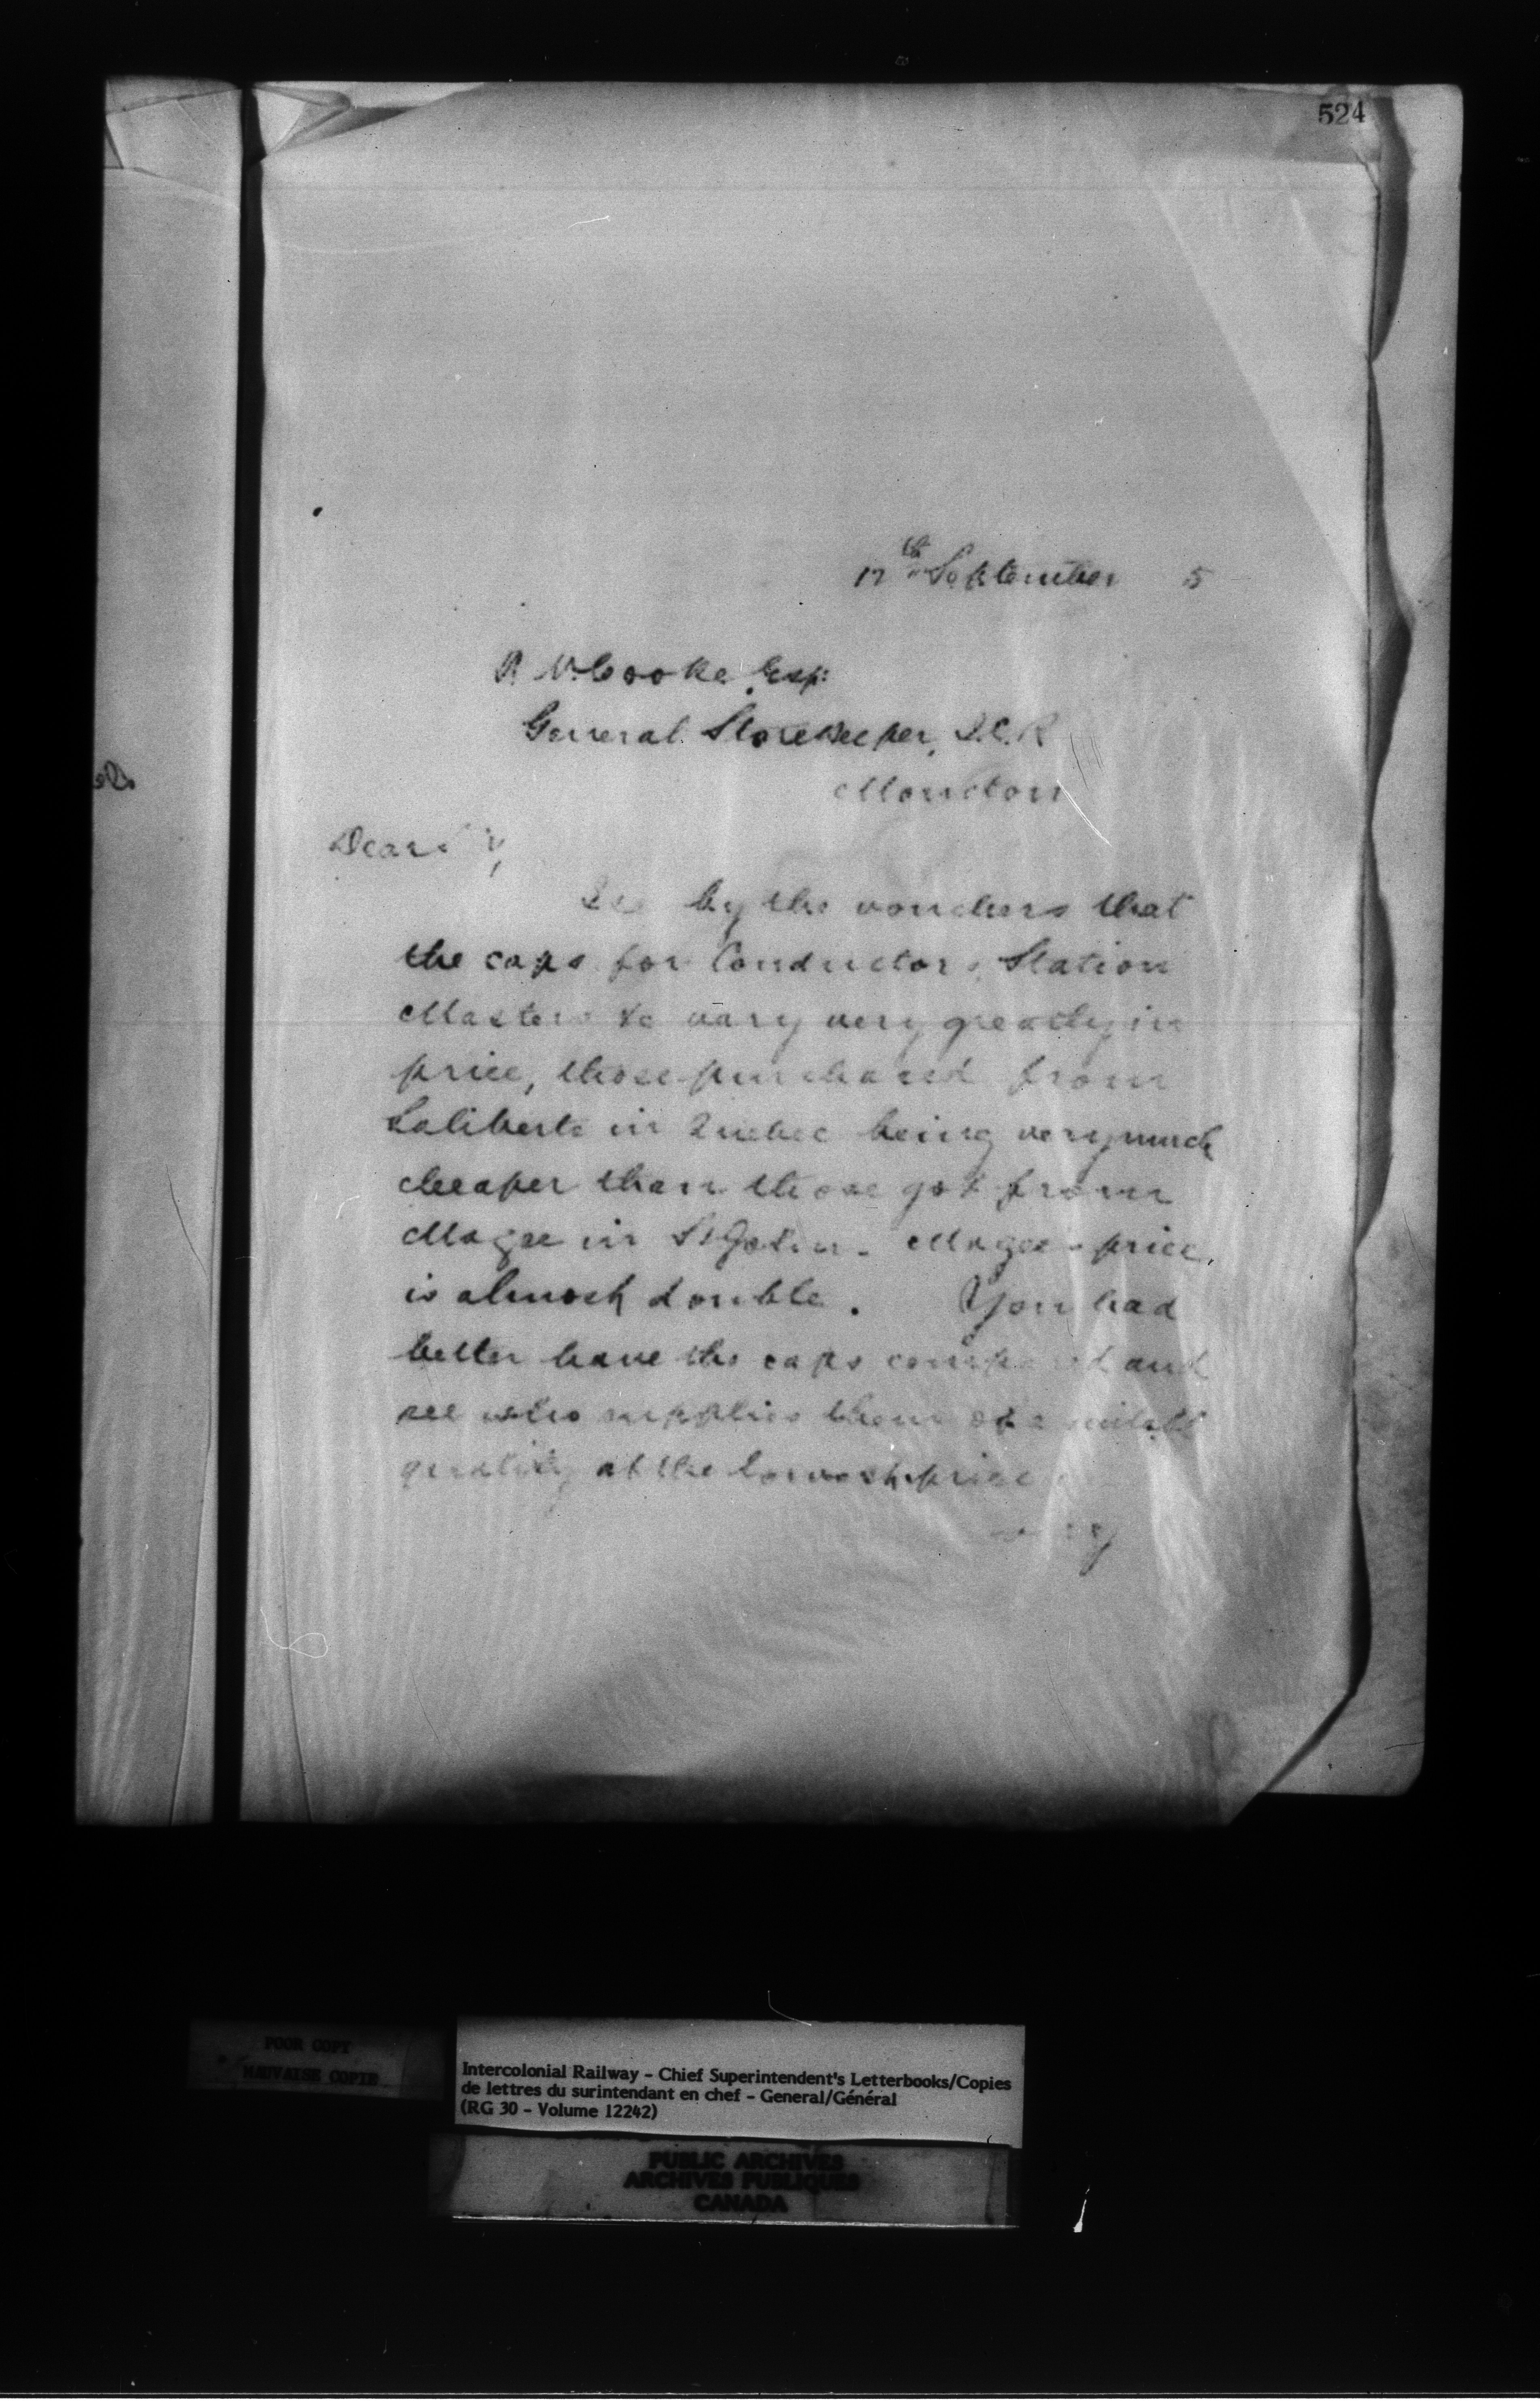 524
17th September 5
R. V. Cooke Esq:
General Storekeeper, I.C.R
Moncton
Dear
by the vouchers that
the caps for Conductors, Station
Masters &c vary very greatly in
price, those purchased from
Laliberte in Quebec being very much
cheaper than those got from
Magee in St John. Magee price
is almost double. You had
better have the caps compared and
see who supplies them of a
quality at the lowest price
POOR COPY
MAUVAISE COPIE
Intercolonial Railway - Chief Superintendent's Letterbooks/Copies
de lettres du surintendant en chef - General/Général
(RG 30 - Volume 12242)
PUBLIC ARCHIVES
ARCHIVES PUBLIQUES
CANADA